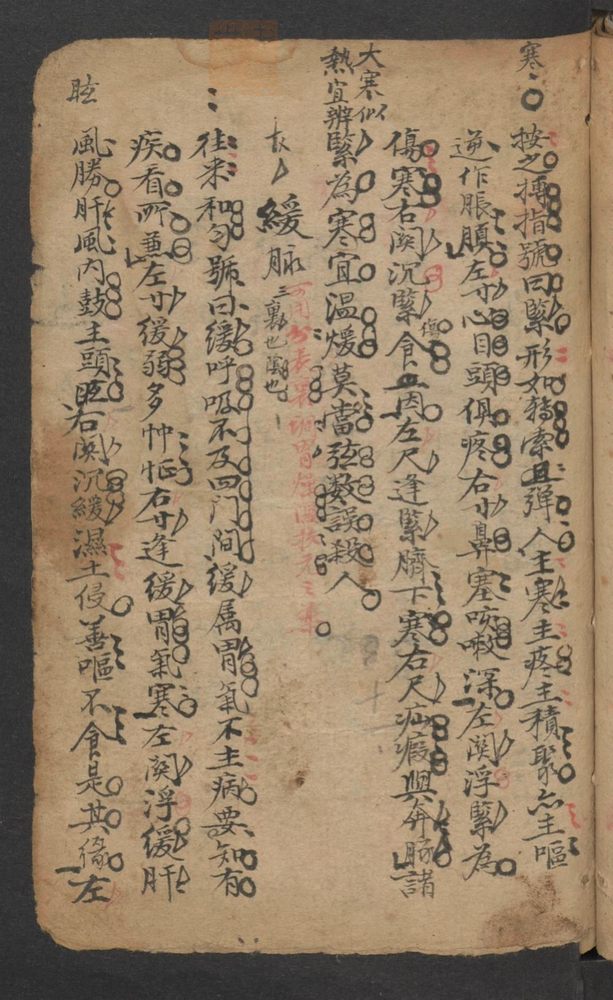 寒
按之搏指號曰緊形如轉索且彈人主寒主疼主積聚亦主嘔
逆作脹膈左寸心目頭俱疼右寸鼻塞咳嗽深左関浮緊為
傷寒右関沉緊食血因左尺逢緊臍下寒右尺疝瘕與奔豚諸
大寒似
熱宜辨
緊為寒宜温煖莫當弦数誤殺人
緩脉 三裏也陰也
往来和匀號曰緩呼吸不及四门间緩属胃氣不主病要知有
疾看所兼左寸緩弱多忡怔右寸逢緩胃氣寒左関浮緩肝
眩
風勝肝風内鼓主頭眩右関沉緩濕土侵善嘔不食是其緣左